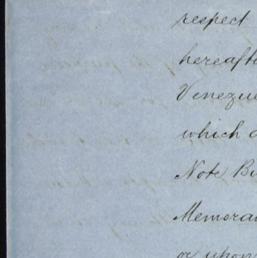 respect
hereaft
Venezue
which
Note Bi
Memoran
or upon